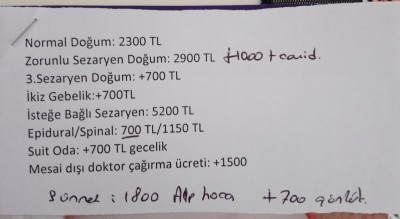 Normal Doğum: 2300 TL
Zorunlu Sezaryen Doğum: 2900 TL +1000 + covid.
3.Sezaryen Doğum: +700 TL
İkiz Gebelik:+700TL
İsteğe Bağlı Sezaryen: 5200 TL
Epidural/Spinal: 700 TL/1150 TL
Suit Oda: +700 TL gecelik
Mesai dışı doktor çağırma ücreti: +1500
Sünnet : 1800 Alp hoca +700 günlük.